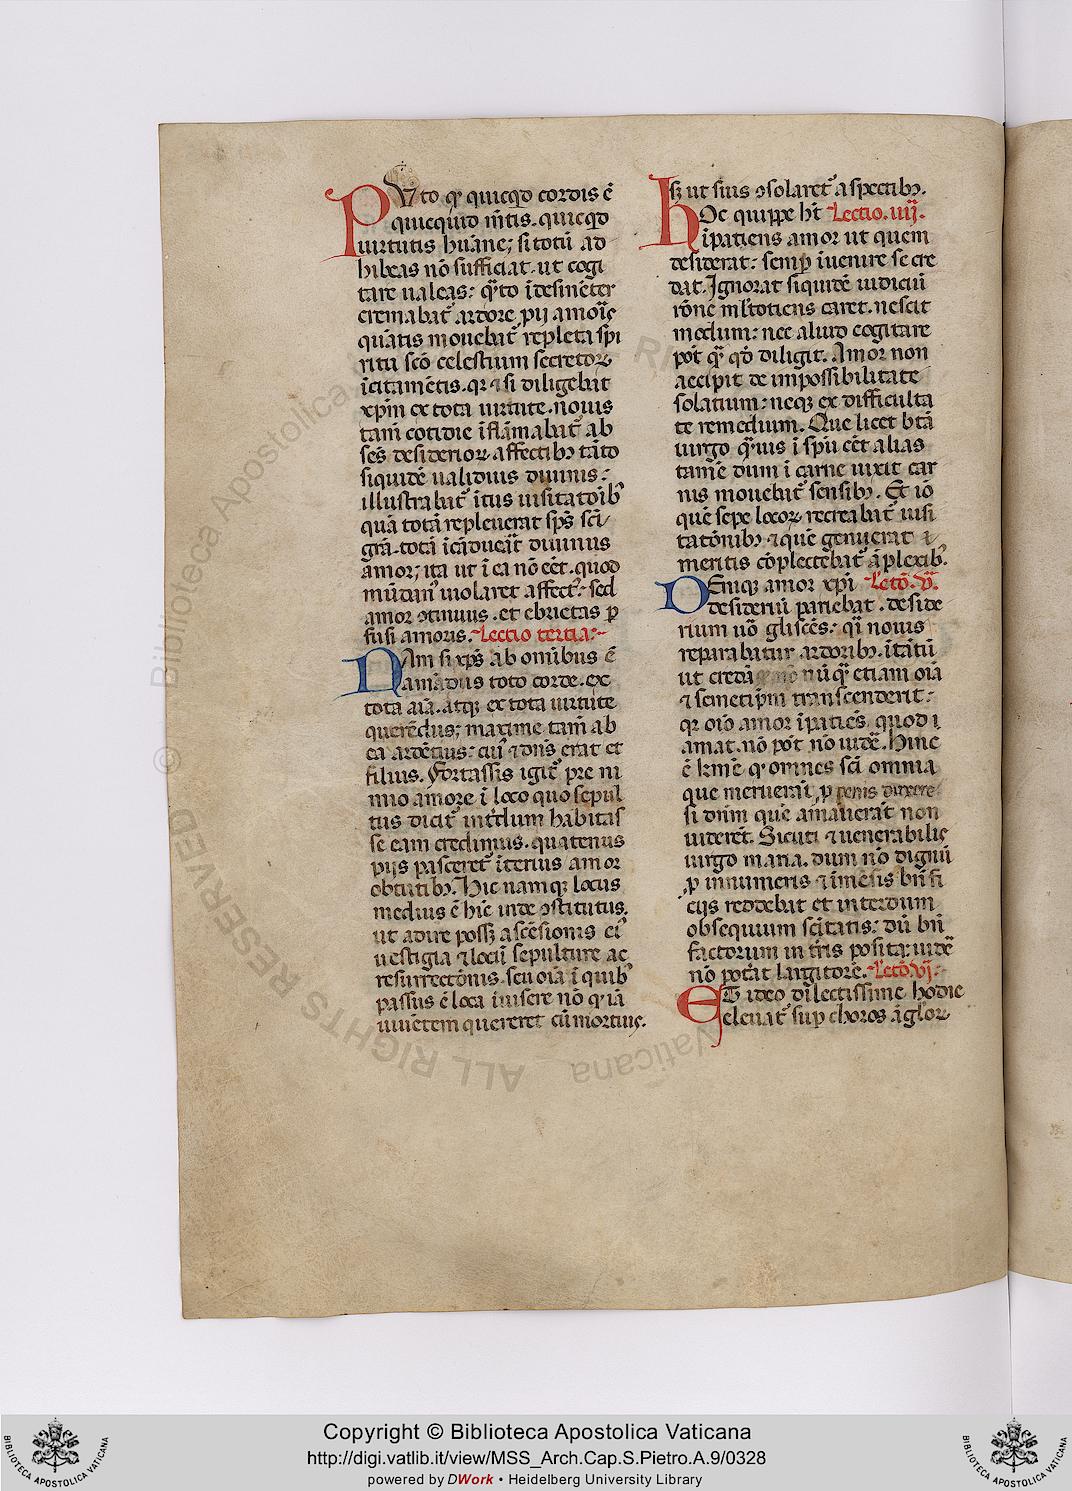 PVto qr quicqd cordis ē
quicquid m̄tis. quicqd
uirtutis humane; si totū ad
hibeas nō sufficiat. ut cogi
tare ualeas: qͣto īdesinēter
cremabat᷑ ardore pij amoris
quātis mouebat᷑ repleta spi
ritu scō celestium secretoꝝ
īcitamētis. qr ⁊ si diligebat
xpm̄ ex tota uirtute. nouis
tam̄ cotidie īflāmabat᷑ ab
desideriorꝝ affectibꝫ tāto
siquidē ualidius diuinis:
illustrabat᷑ ītus uisitatōibꝰ
quā totā repleuerat sp̄s sc̄i
gr̄a. totā diuinus
amor; ita ut ī ea nō eēt. quod
mūdan᷒ uiolaret affectꝰ: sed
amor ꝯtinuus. et ebrietas ꝑ
fusi amoris. Lectio tertia:
NAm si xp̄s ab omibus ē
amādus toto corde. ex
tota aīa. atqꝫ ex tota uirtute
querēdus; maxime tam̄ ab
ea ardētius: cui᷒ ⁊ dn̄s erat et
filius. Fortassis igit᷑ pre ni
mio amore ī loco quo sepul
tus dicit᷑ int̄dum habitas
se eam credimus. quatenus
pijs pasceret᷑ īterius amor
obtutibꝫ. Hic namqꝫ locus
medius ē hīc inde ꝯstitutus.
ut adire possꝫ ascēsionis ei᷒
uestigia ⁊ locū sepulture ac
resurrectōnis. seu oīa ī quibꝰ
passus ē loca inuisere nō qr iā
uiuētem quereret cū mortuis.
sꝫ ut suis ꝯsolaret᷑ aspectibꝫ.
hOc quippe ht̄ Lectio. iiij.
īpatiens amor ut quem
desiderat: semꝑ īuenire se cre
dat. Ignorat siquidē iudiciū
rōne ml̄totiens caret. nescit
modum: nec aliud cogitare
pōt qͣ qd̄ diligit. Amor non
accipit de impossibilitate
solatium: neqꝫ ex difficulta
te remedium. Que licet bt̄ā
uirgo qͣuis ī spū eēt alias
tamē dum ī carne uixit car
nis mouebat᷑ sensibꝫ. Et iō
quē sepe locoꝝ recreabat᷑ uisi
tatōnibꝫ ⁊ quē genuerat
mentis cōplectebat᷑ āplexibꝰ.
DEniqꝫ amor xp̄i Lectō. v.
desideriū pariebat. deside
rium uō gliscēs: qͣi nouis
reparabatur ardoribꝫ. ītātū
ut credā nūqͣ etiam oīa
⁊ semetip̄m transcenderit:
qr oīo amor īpatiēs quod
amat. nō pōt nō uidē᷑. Hinc
ē qr omnes sc̄i omnia
que meruerāt, ꝓ penis duxere
si dn̄m quē amauerāt non
uiderēt. Sicuti ⁊ uenerabilis
uirgo maria. dum nō dignū
ꝓ innumeris ⁊ īmēsis bn̄fi
cijs reddebat et interdum
obsequium sc̄itatis: dū bn̄
factorum in t̄ris posita: uidē᷑
nō poterat largitorē. Lectō. vi:
ET ideo dilectissime hodie
eleuat᷑ suꝑ choros āgloꝝ
© Biblioteca Apostolica Vaticana
ALL RIGHTS RESERVED
Copyright © Biblioteca Apostolica Vaticana
http://digi.vatlib.it/view/MSS_Arch.Cap.S.Pietro.A.9/0328
powered by DWork • Heidelberg University Library
BIBLIOTECA APOSTOLICA VATICANA
BIBLIOTECA APOSTOLICA VATICANA